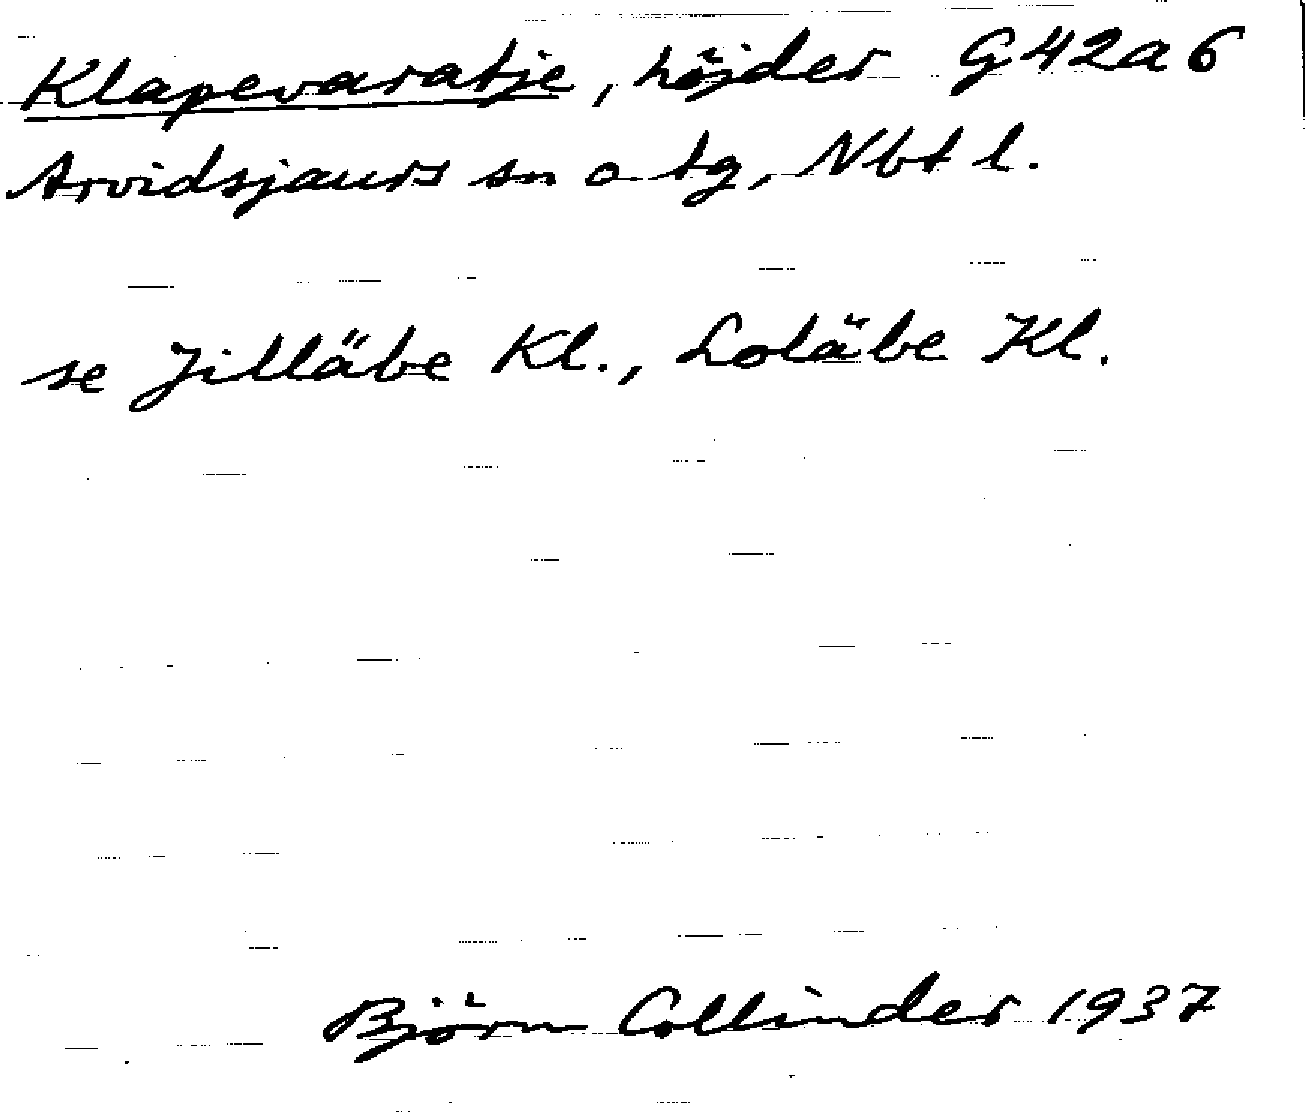 Klapevaratje, höjder G42a6
Arvidsjaurs sn o tg, Nbt l.
se Jilläbe Kl., Loläbe Kl.
Björn Collinder 1937